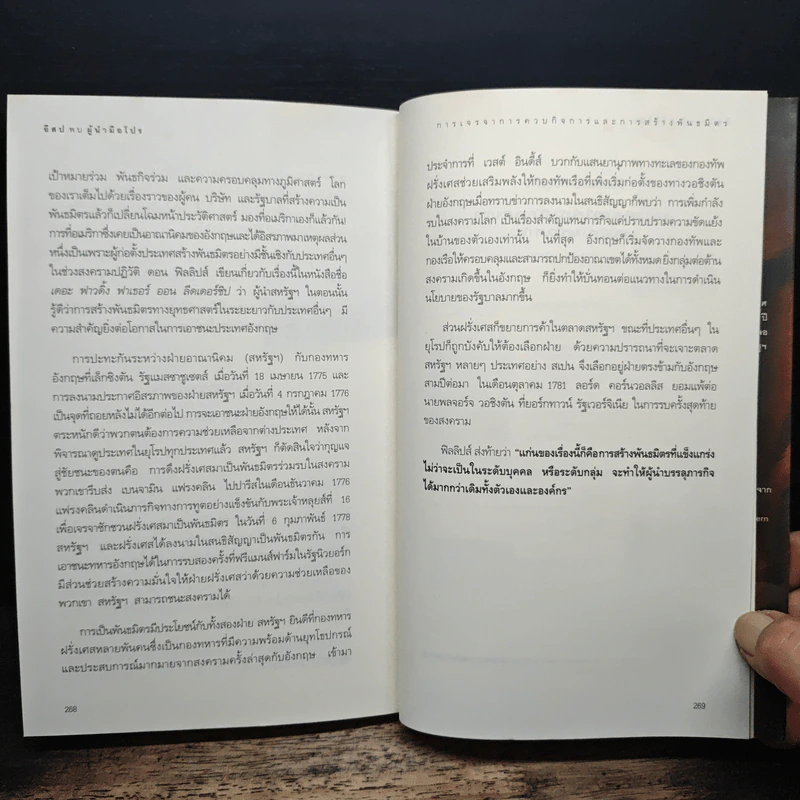 อีสป พบ ผู้นำมือโปร
เป้าหมายร่วม พันธกิจร่วม และความครอบคลุมทางภูมิศาสตร์ โลก
ของเราเต็มไปด้วยเรื่องราวของผู้คน บริษัท และรัฐบาลที่สร้างความเป็น
พันธมิตรแล้วก็เปลี่ยนโฉมหน้าประวัติศาสตร์ มองที่อเมริกาเองก็แล้วกัน!
การที่อเมริกาซึ่งเคยเป็นอาณานิคมของอังกฤษและได้อิสรภาพมาเหตุผลส่วน
หนึ่งเป็นเพราะผู้ก่อตั้งประเทศสร้างพันธมิตรอย่างมีชั้นเชิงกับประเทศอื่นๆ
ในช่วงสงครามปฏิวัติ ดอน ฟิลลิปส์ เขียนเกี่ยวกับเรื่องนี้ในหนังสือชื่อ
เดอะ ฟาวดิ้ง ฟาเธอร์ ออน ลีดเดอร์ชิป ว่า ผู้นำสหรัฐฯ ในตอนนั้น
รู้ดีว่าการสร้างพันธมิตรทางยุทธศาสตร์ในระยะยาวกับประเทศอื่นๆ มี
ความสำคัญยิ่งต่อโอกาสในการเอาชนะประเทศอังกฤษ
การปะทะกันระหว่างฝ่ายอาณานิคม (สหรัฐฯ) กับกองทหาร
อังกฤษที่เล็กซิงตัน รัฐแมสซาชูเซตส์ เมื่อวันที่ 18 เมษายน 1775 และ
การลงนามประกาศอิสรภาพของฝ่ายสหรัฐฯ เมื่อวันที่ 4 กรกฎาคม 1776
เป็นจุดที่ถอยหลังไม่ได้อีกต่อไป การจะเอาชนะฝ่ายอังกฤษให้ได้นั้น สหรัฐฯ
ตระหนักดีว่าพวกตนต้องการความช่วยเหลือจากต่างประเทศ หลังจาก
พิจารณาดูประเทศในยุโรปทุกประเทศแล้ว สหรัฐฯ ก็ตัดสินใจว่ากุญแจ
สู่ชัยชนะของตนคือ การดึงฝรั่งเศสมาเป็นพันธมิตรร่วมรบในสงคราม
พวกเขารีบส่ง เบนจามิน แฟรงคลิน ไปปารีสในเดือนธันวาคม 1776
แฟรงคลินดำเนินภารกิจทางการทูตอย่างแข็งขันกับพระเจ้าหลุยส์ที่ 16
เพื่อเจรจาชักชวนฝรั่งเศสมาเป็นพันธมิตร ในวันที่ 6 กุมภาพันธ์ 1778
สหรัฐฯ และฝรั่งเศสได้ลงนามในสนธิสัญญาเป็นพันธมิตรกัน การ
เอาชนะทหารอังกฤษได้ในการรบสองครั้งที่ฟรีแมนส์ฟาร์มในรัฐนิวยอร์ก
มีส่วนช่วยสร้างความมั่นใจให้ฝ่ายฝรั่งเศสว่าด้วยความช่วยเหลือของ
พวกเขา สหรัฐฯ สามารถชนะสงครามได้
การเป็นพันธมิตรมีประโยชน์กับทั้งสองฝ่าย สหรัฐฯ ยินดีที่กองทหาร
ฝรั่งเศสหลายพันคนซึ่งเป็นกองทหารที่มีความพร้อมด้านยุทโธปกรณ์
และประสบการณ์มากมายจากสงครามครั้งล่าสุดกับอังกฤษ เข้ามา
268
การเจรจาการควบกิจการและการสร้างพันธมิตร
ประจำการที่ เวสต์ อินดี้ส์ บวกกับแสนยานุภาพทางทะเลของกองทัพ
ฝรั่งเศสช่วยเสริมพลังให้กองทัพเรือที่เพิ่งเริ่มก่อตั้งของทางวอชิงตัน
ฝ่ายอังกฤษเมื่อทราบข่าวการลงนามในสนธิสัญญาก็พบว่า การเพิ่มกำลัง
รบในสงครามโลก เป็นเรื่องสำคัญแทนภารกิจแค่ปราบปรามความขัดแย้ง
ในบ้านของตัวเองเท่านั้น ในที่สุด อังกฤษก็เริ่มจัดวางกองทัพและ
กองเรือให้ครอบคลุมและสามารถปกป้องอาณาเขตได้ทั้งหมด ยิ่งกลุ่มต่อต้าน
สงครามเกิดขึ้นในอังกฤษ ก็ยิ่งทำให้บั่นทอนต่อแนวทางในการดำเนิน
นโยบายของรัฐบาลมากขึ้น
ส่วนฝรั่งเศสก็ขยายการค้าในตลาดสหรัฐฯ ขณะที่ประเทศอื่นๆ ใน
ยุโรปก็ถูกบังคับให้ต้องเลือกฝ่าย ด้วยความปรารถนาที่จะเจาะตลาด
สหรัฐฯ หลายๆ ประเทศอย่าง สเปน จึงเลือกอยู่ฝ่ายตรงข้ามกับอังกฤษ
สามปีต่อมา ในเดือนตุลาคม 1781 ลอร์ด คอร์นวอลลิส ยอมแพ้ต่อ
นายพลจอร์จ วอชิงตัน ที่ยอร์กทาวน์ รัฐเวอร์จิเนีย ในการรบครั้งสุดท้าย
ของสงคราม
ฟิลลิปส์ ส่งท้ายว่า “แก่นของเรื่องนี้ก็คือการสร้างพันธมิตรที่แข็งแกร่ง
ไม่ว่าจะเป็นในระดับบุคคล หรือระดับกลุ่ม จะทำให้ผู้นำบรรลุภารกิจ
ได้มากกว่าเดิมทั้งตัวเองและองค์กร”
269
จาก
ern